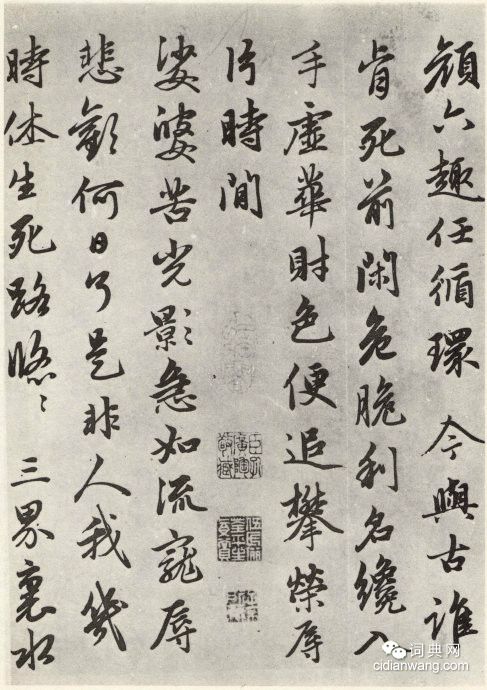 顏六趣任循環 今與古誰
肯死前閑危脆利名纔入
手虛華財色便追攀榮辱
片時間
娑婆苦光影急如流寵辱
悲歡何日了是非人我幾
時休生死路悠〻 三界裏水
词典网
cidianwang.com